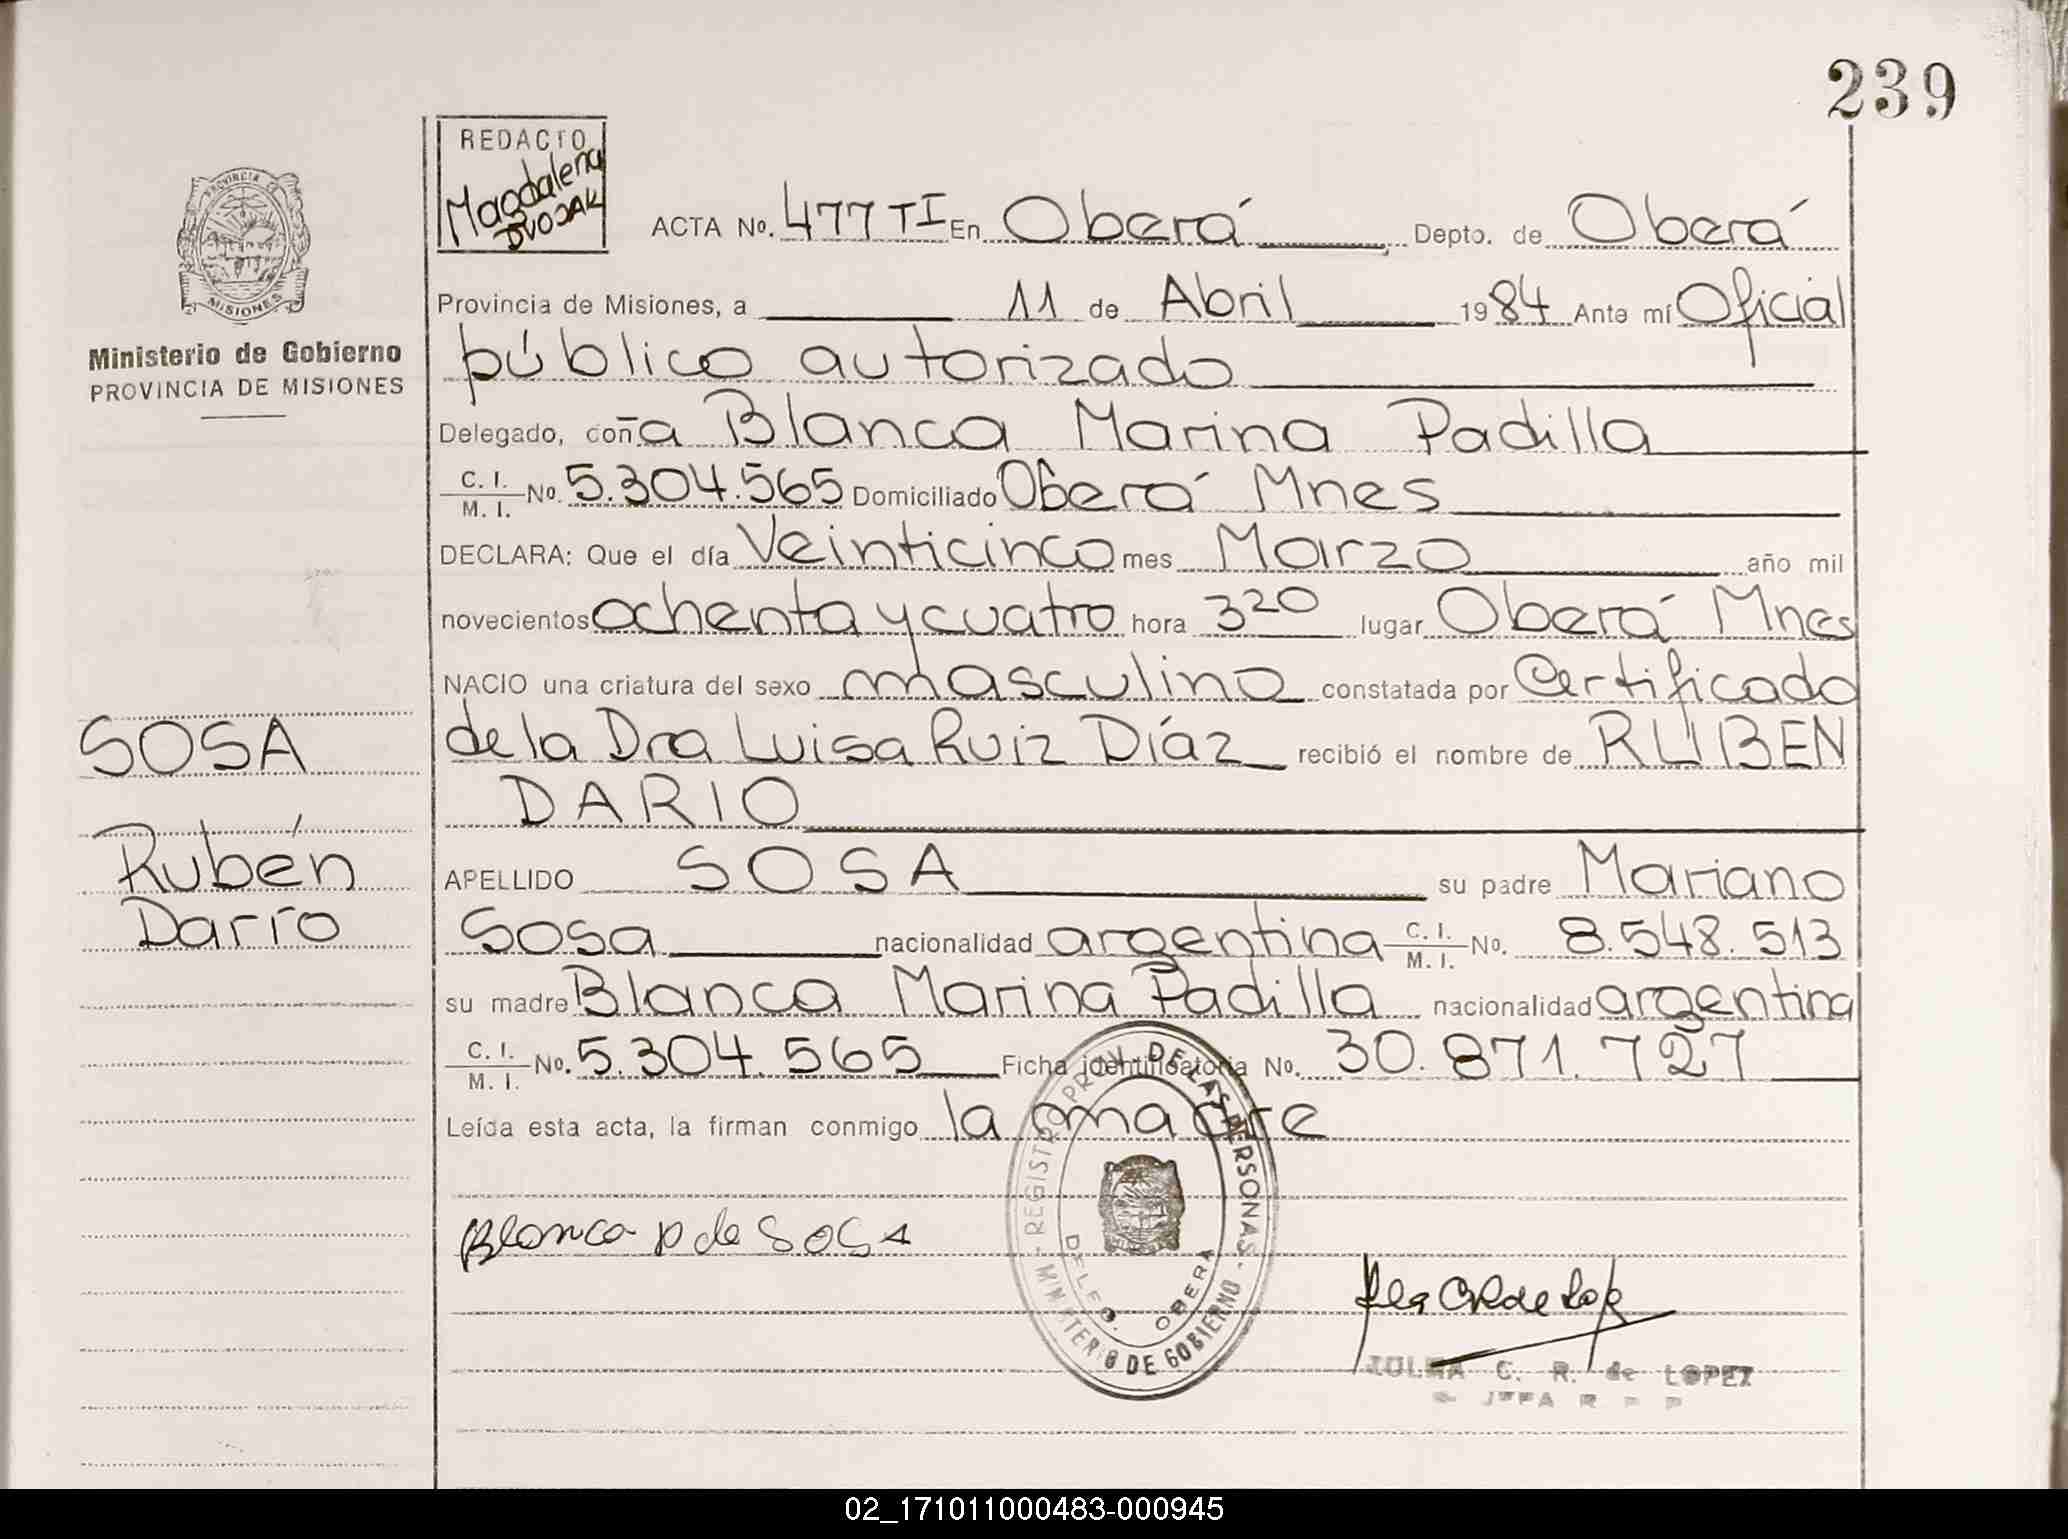 239
REDACTO
Magdalena
DVOJAK
PROVINCIA DE
MISIONES
Ministerio de Gobierno
PROVINCIA DE MISIONES
ACTA No. 477 TI En Oberá Depto. de Oberá
Provincia de Misiones, a 11 de Abril 1984 Ante mí Oficial
público autorizado
Delegado, con a Blanca Marina Padilla
C. I. / M. I. No. 5.304.565 Domiciliado Oberá Mnes
DECLARA: Que el día Veinticinco mes Marzo año mil
novecientos ochenta y cuatro hora 3 20 lugar Oberá Mnes
NACIO una criatura del sexo masculino constatada por Certificado
de la Dra Luisa Ruiz Díaz recibió el nombre de RUBEN
DARIO
APELLIDO SOSA su padre Mariano
Sosa nacionalidad argentina C. I. / M. I. No. 8.548.513
su madre Blanca Marina Padilla nacionalidad argentina
C. I. / M. I. No. 5.304.565 Ficha identificatoria No. 30.871.727
Leída esta acta, la firman conmigo la madre
SOSA
Rubén
Darío
Blanca P de SOSA
REGISTRO PROV. DE LAS PERSONAS
MINISTERIO DE GOBIERNO
DELEG. OBERA
C. R. de LOPEZ
02_171011000483-000945